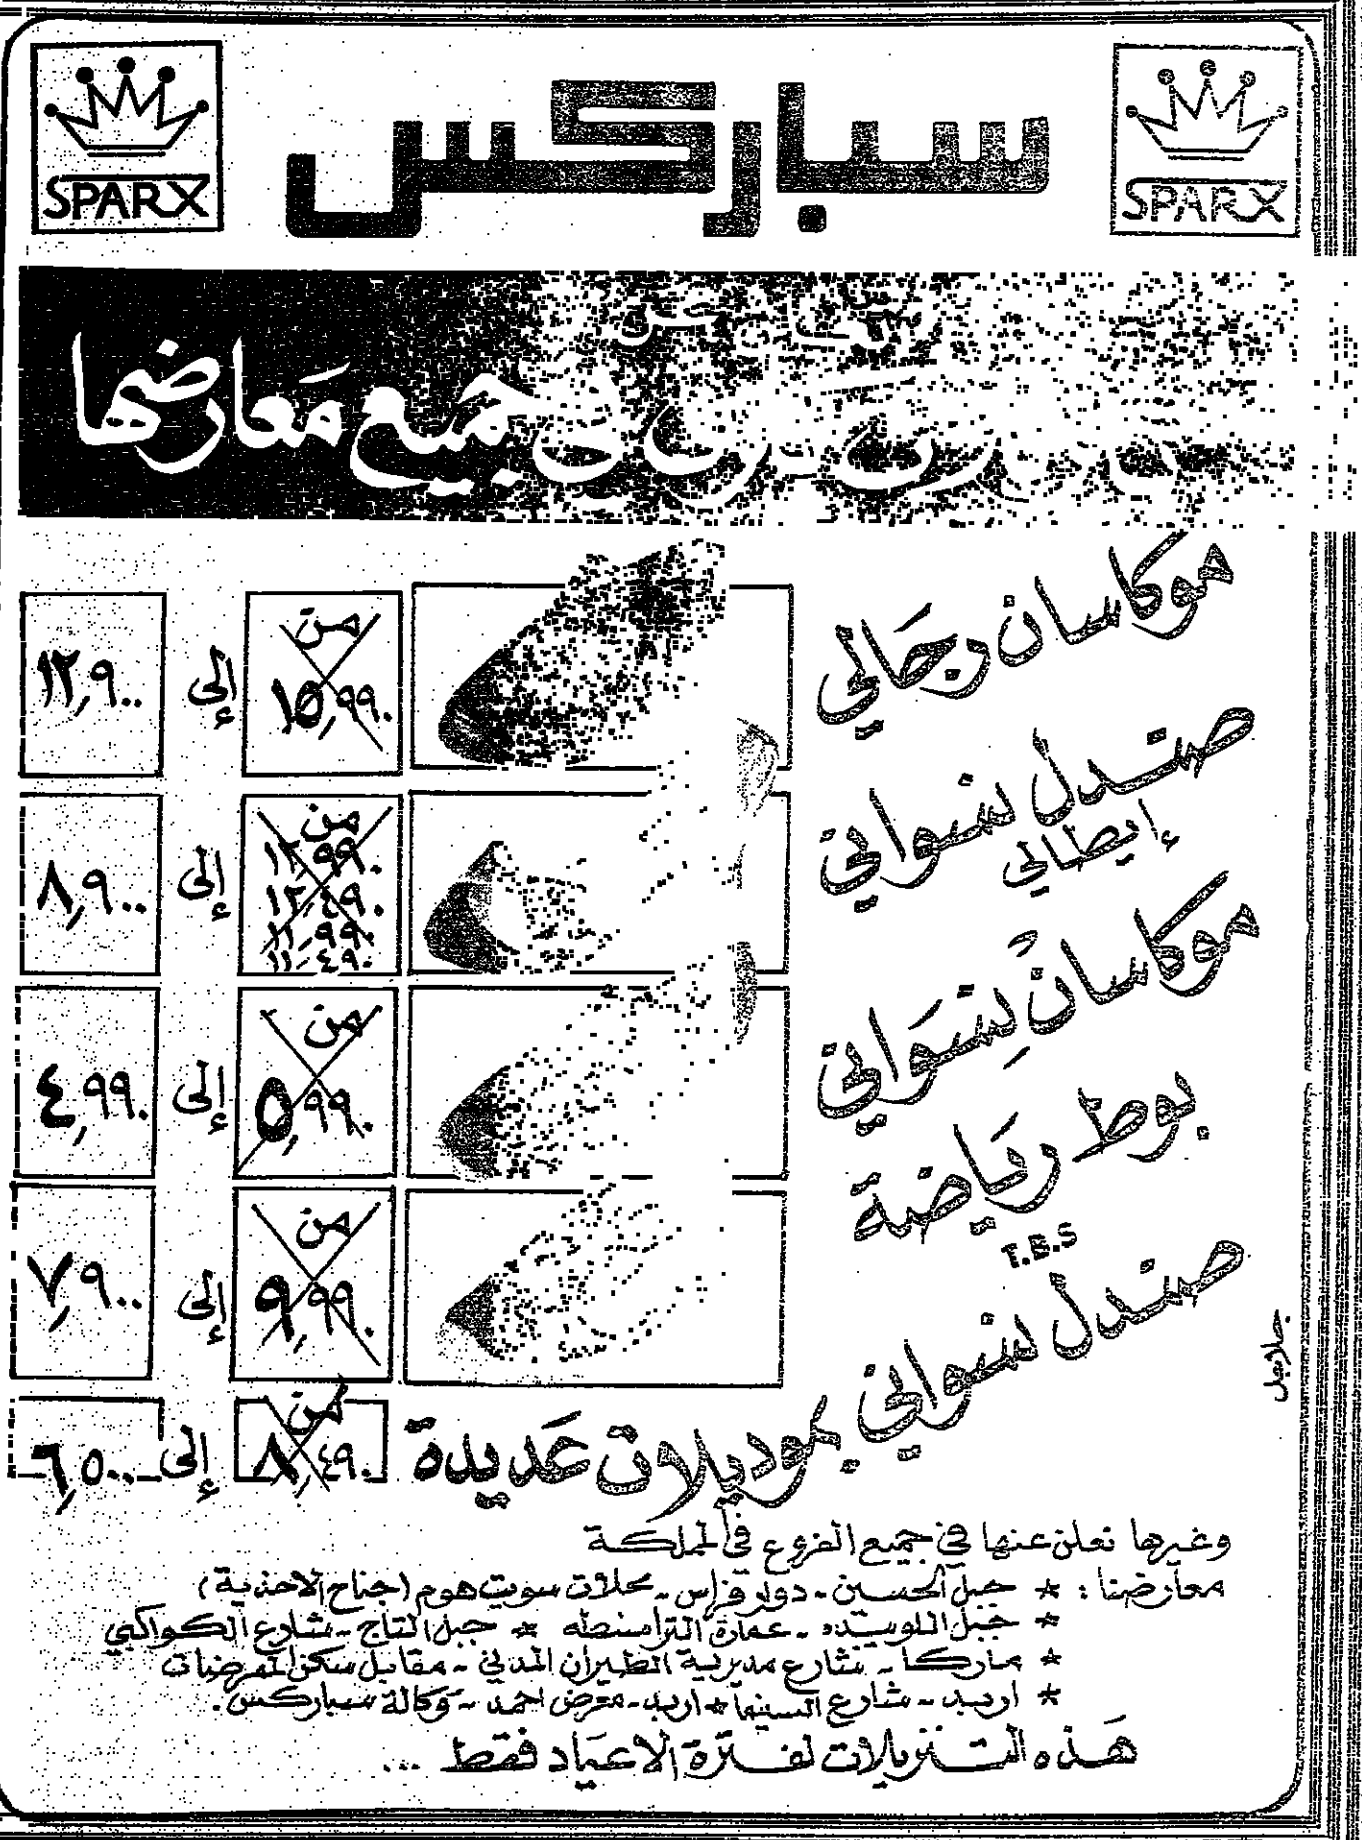 SPARX
سباركس
SPARX
جميع معارضها
موكاسان رجالي
من ١٥,٩٩٠
إلى
١٢,٩٠٠
صندل نسواني
إيطالي
من
١٢,٩٩٠
١٢,٤٩٠
١١,٩٩٠
١١,٤٩٠
إلى
٨,٩٠٠
موكاسان نسواني
من ٥,٩٩٠
إلى
٤,٩٩٠
بوط رياضة
T.B.S
من ٩,٩٩٠
إلى
٧,٩٠٠
صندل نسواني
بموديلات عديدة
من ٨,٤٩٠
إلى
٦,٥٠٠
وغيرها نعلن عنها في جميع الفروع في المملكة
معارضنا : * جبل الحسين - دوار فراس - محلات سويت هوم (جناح الاحذية)
* جبل اللويبده - عمارة * جبل التاج - شارع الكواكبي
* ماركا - شارع مديرية الطيران المدني - مقابل سكن الممرضات
* اربد - شارع السينما * اربد - معرض احمد - وكالة سباركس .
هذه التنزيلات لفترة الاعياد فقط ...